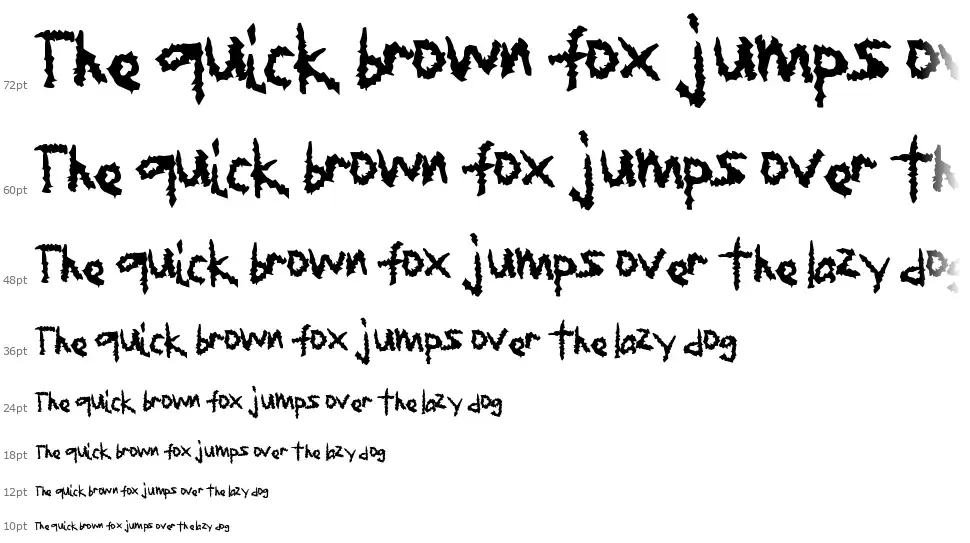 72pt The quick brown fox jumps ov
60pt The quick brown fox jumps over th
48pt The quick brown fox jumps over the lazy dog
36pt The quick brown fox jumps over the lazy dog
24pt The quick brown fox jumps over the lazy dog
18pt The quick brown fox jumps over the lazy dog
12pt The quick brown fox jumps over the lazy dog
10pt The quick brown fox jumps over the lazy dog